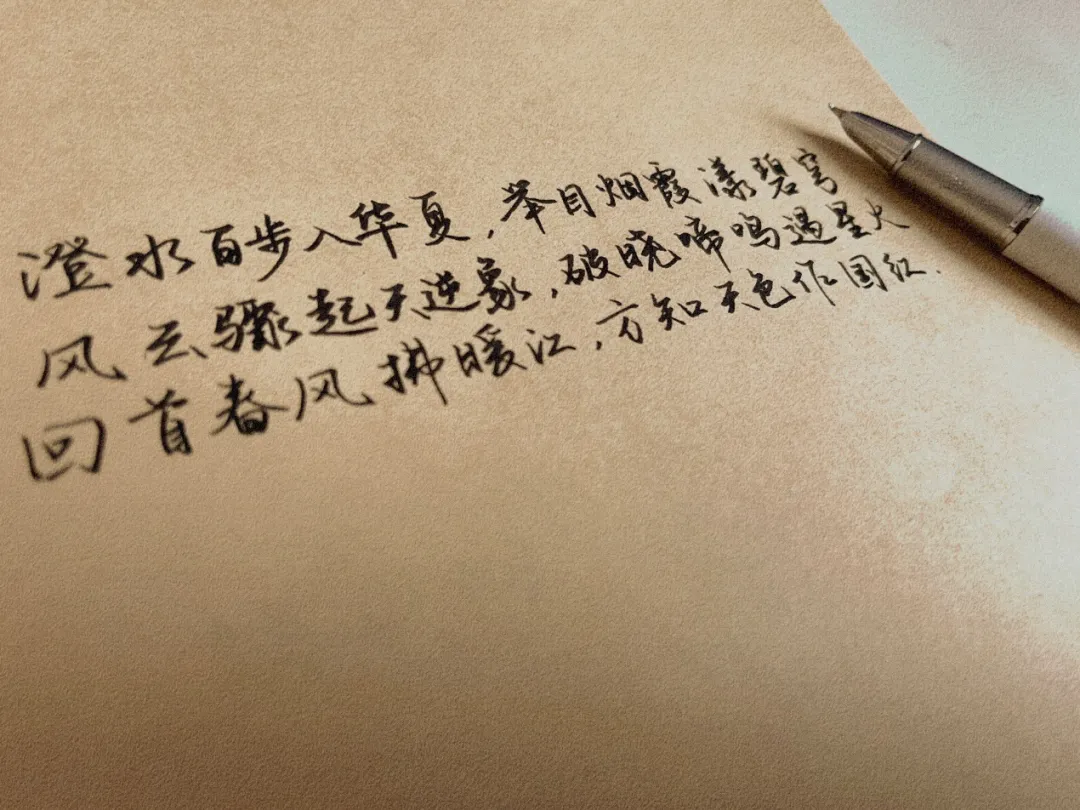 澄水百步入华夏,举目烟霞漾碧穹
风云骤起天逆象,破晓啼鸣遇星火
回首春风拂暖江,方知天色作国红.